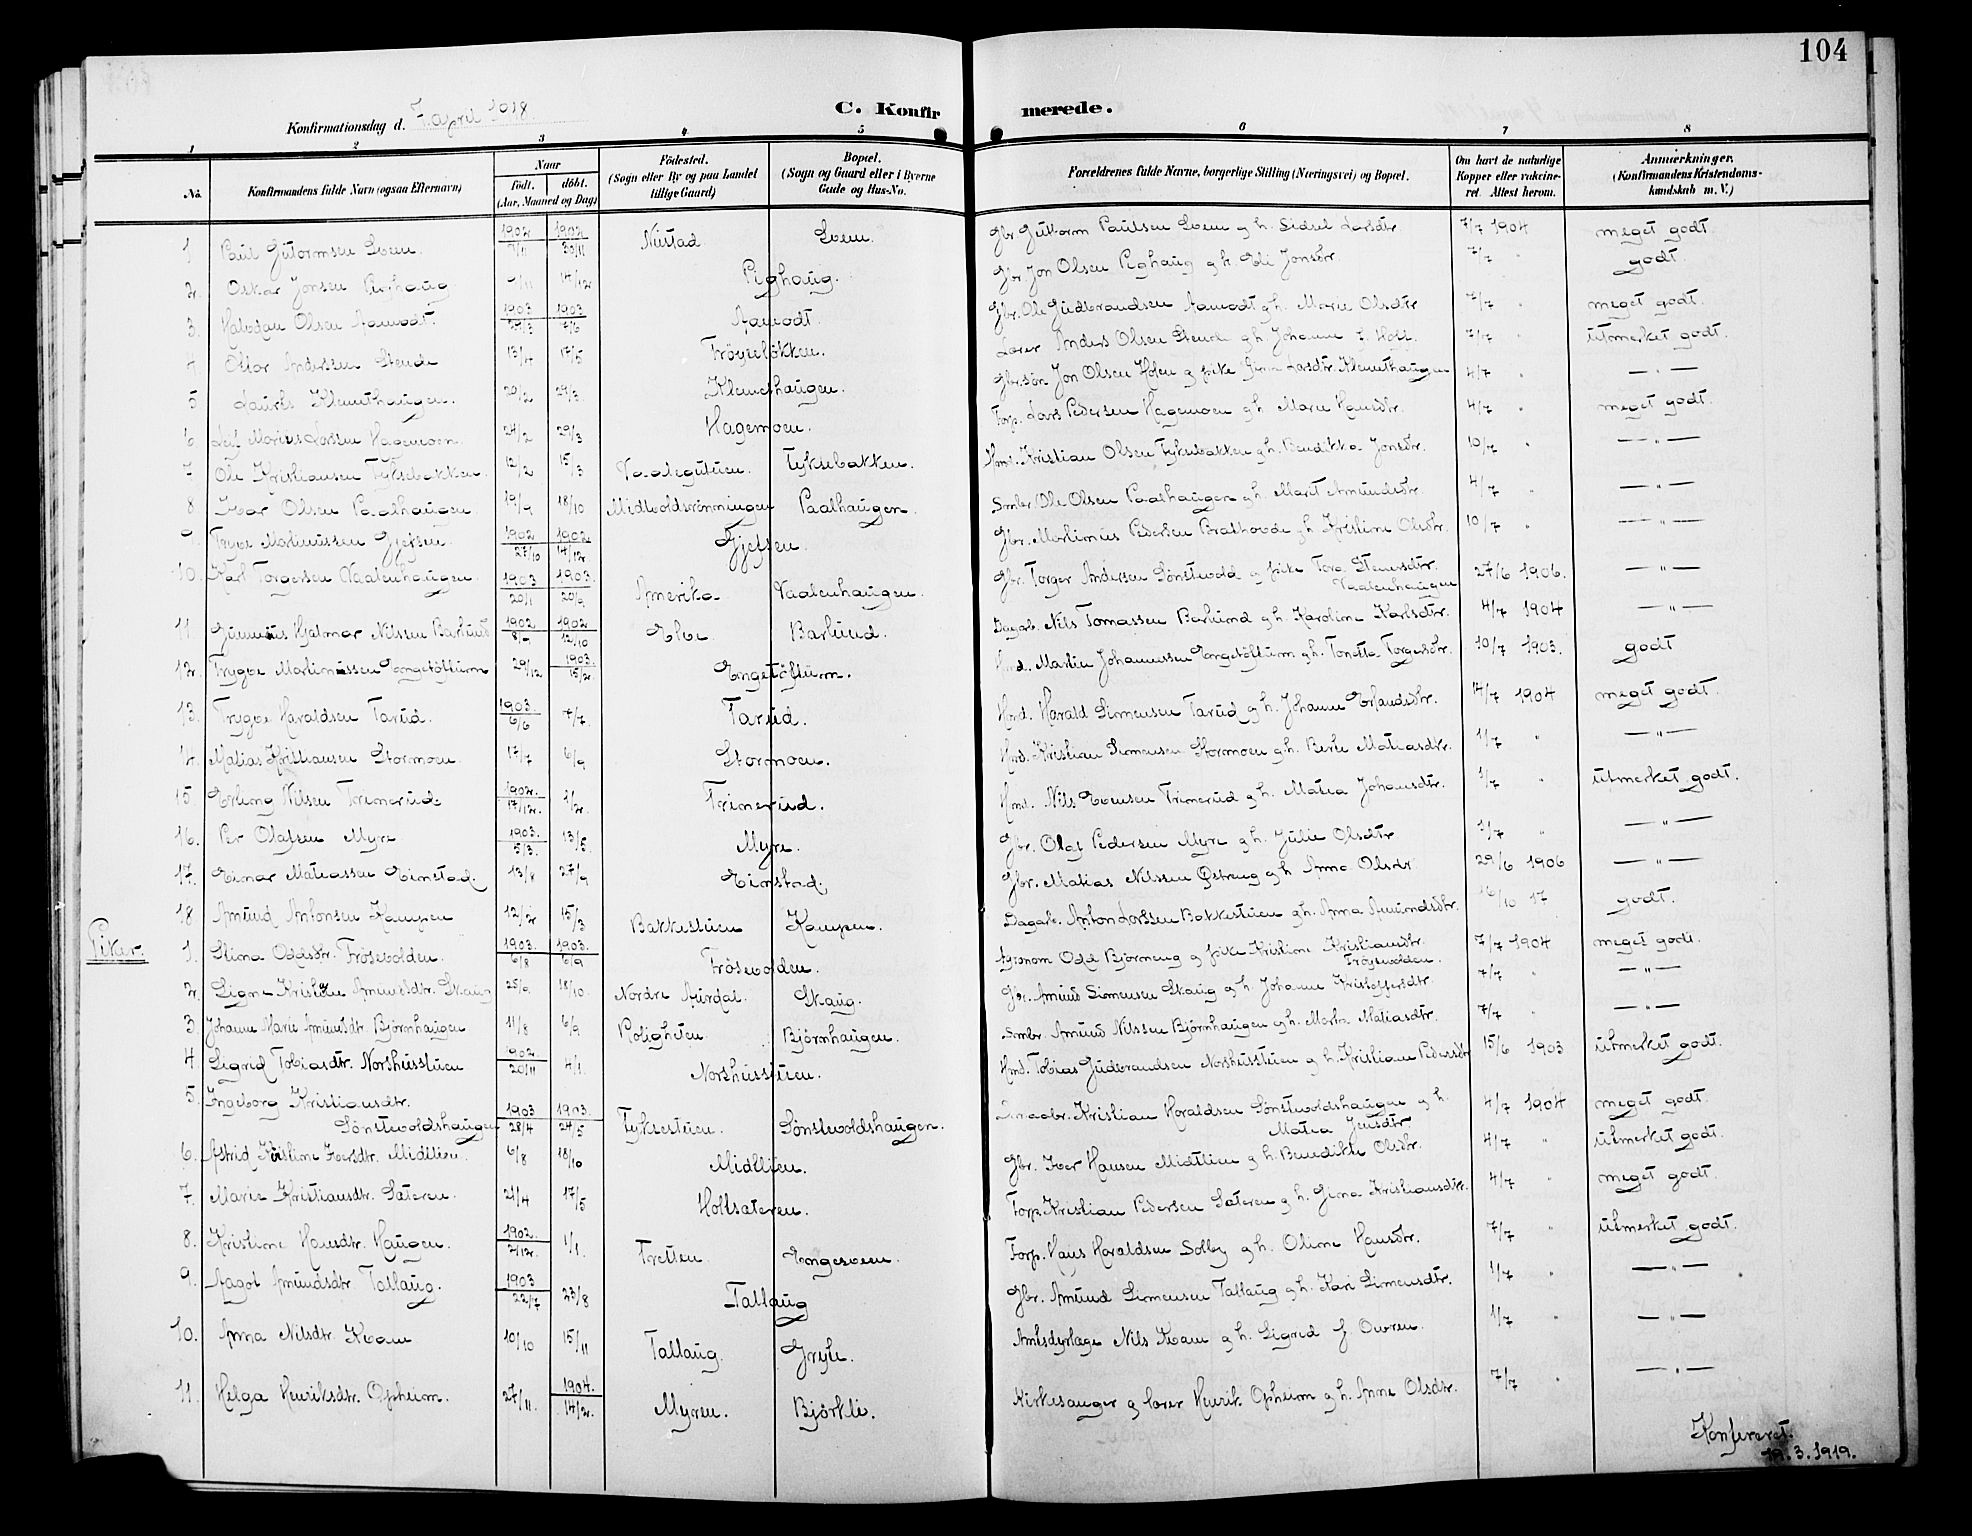 104
Konfirmationsdag d. 7. april 1918.
C. Konfirmerede.
1 2 3 4 5 6 7 8
No. Konfirmandens fulde Navn (ogsaa Efternavn) Naar født. døbt. (Aar, Maaned og Dag) Fødested. (Sogn eller By og paa Landet tillige Gaard) Bopæl. (Sogn og Gaard eller i Byerne Gade og Hus-No. Forældrenes fulde Navne, borgerlige Stilling (Næringsvei) og Bopæl. Om havt de naturlige Kopper eller vaccineret. Attest herom. Anmærkninger. (Konfirmandens Kristendomskundskab m. V.)
1 Paul Gutormsen Loen. 1902 7/11 1902 30/11 Nustad Loen. Gbr. Guttorm Paulsen Loen g h. Sidsel Larsdtr. 7/7 1904 meget godt.
2. Oskar Jonsen 14/12 Pighaug. Gbr. Jon Olsen Pighaug g h. Eli Jonsdtr. 7/7 " godt
3. Halvdan Olsen Aamodt. 1903 29/3 1903 7/6 Aamodt. Gbr. Ole Gudbrandsen Aamodt g h. Marie Olsdtr 7/7 " meget godt.
4 Ottar Andersen Stende 13/4 17/5 Frøyseløkken. Lærer Anders Olsen Stende g h. Johanne f. Holt. 7/7 " utmerket godt.
5 Laurits Klemthaugen. 20/2 29/3 Klemethaugen. Gbr.søn Jon Olsen Holen g pike Larsdtr. Klemthaugen 4/7 " — " —
6 Leif Marius Larssen Hagemoen. 24/2 29/3 Hagemoen. Forp. Lars Pedersen Hagemoen g h. Maren Hansdtr. 4/7 " meget godt.
7 Ole Kristiansen Fyksebakken. 12/2 15/3 Fyksebakken. Hmd. Kristian Olsen Fyksebakken g h. Bendikka Jonsdtr. 10/7 " — " —
8 Ivar Olsen Paalhaugen. 19/9 18/10 Midtvoldsrønningen Paalhaugen. Smbr. Ole Olsen Paalhaugen g h. Marit Amundsdtr. 4/7 " — " —
9. Trygve Martinussen Gjefsen. 1902 27/10 1902. 14/12 Gjefsen. Gbr. Martinus Pedersen Brathovde g h. Kristine Olsdtr. 10/7 " — " —
10. Karl Torgersen Vaalenhaugen. 1903 20/1 1903. 20/9 Amerika Vaalenhaugen. Gbr. Torger Andersen Sønstevold g pike Tora Stensdtr. Vaalenhaugen 27/6 1906. — " —
11. Hjalmar Nilssen Barlund 1902 8/9 1902 12/10 Elve Barlund. Dagarb. Nils Tomassen Barlund g h. Karoline Karlsdtr. 4/7 1904 — " —
12. Trygve Martinussen Engetøftum 29/12 1903. 15/2. Engetøftum. Hmd. Martin Johannessen Engetøftum g h. Tonetta Torgersdtr. 10/7 1903. godt
13. Trygve Haraldsen Tarud. 1903. 6/6 7/7. Tarud. Hmd. Harald Simensen Tarud g h. Johanne Erlandsdtr. 14/7 1904 meget godt.
14. Matias Kristiansen Stormoen. 17/7 6/9 Stormoen. Hmd. Kristian Simensen Stormoen g h. Berte Matiasdtr. 1/7 " — " —
15. Erling Nilsen Trinerud. 1902. 17/12. 1/2. Trinerud. Hmd. Nils Evensen Trinerud g h. Matea Johansdtr. 1/7 " utmerket godt.
16. Per Olafsen Myre 1903. 5/3. 13/5. Myre. Gbr. Olaf Pedersen Myre g h. Julie Olsdtr 1/7 " — " —
17. Einar Matiassen Einstad. 13/8 27/9 Einstad. Gbr. Matias Nilssen Østeng g h. Anna Olsdr. 29/6 1906 — " —
18 Amund Antonsen Kampen 12/2 15/3 Bakkestuen Kampen. Dagarb. Anton Larssen Bakkestuen g h. Anna Amundsdtr. 16/10 17 godt.
Piker.
1. Stina Oddsdtr. Frösevolden. 1903. 6/8 1903. 6/9 Frösevolden. Agronom Odd Björneng g pike Kristine Kristiansdtr. Fröysevolden. 7/7 1904 meget godt.
2. Signe Kristine Amundsdtr. Skaug 25/9 18/10. Nordre Aurdal. Skaug. Gbr. Amund Simensen Skaug g h. Johanne Kristoffersdtr. 7/7 " — " —
3. Johanne Marie Amundsdtr. Björnhaugen 11/8 6/9 Roligheten. Björnhaugen. Smbr. Amund Nilssen Björnhaugen g h. Marta Matiasdtr. 7/7 " — " —
4 Sigrid Tobiasdtr. Norshusstuen 1902. 20/11 4/1. Norshusstuen. Hmd. Tobias Gudbrandsen Norshusstuen g h. Kristiane Pedersdtr 15/6 1903 utmerket godt.
5. Ingeborg Kristiansdtr.
Sönstevoldshaugen 1903 28/4 1903. 24/5 Fyksestuen. Sönstevoldshaugen. Kristian Haraldsen Sönstevoldshaugen g h. Matea Jensdtr 4/7 1904 meget godt.
6. Astrid Kristine Iversdtr. Midtlien. 6/8 18/10 Midtlien. Gbr. Iver Hansen Midtlien g h. Benedikte Olsdtr. 4/7 " utmerket godt.
7. Marie Kristiansdtr. Sæteren. 21/4 17/5 Holtsæteren. Forp. Kristian Pedersen Sæteren g h. Gina Kristiansdtr. 4/7 " meget godt.
8. Kristine Hansdtr. Haugen. 1902. 2/12. 1/1. Tretten Engesveen. Forp. Hans Haraldsen Solby g h. Oline Hansdtr. 7/7 " utmerket godt.
9. Aagot Amundsdtr. Tallaug. 1903 22/7 23/8 Tallaug Gbr. Amund Simensen Tallaug g h. Kari Simensdtr. 1/7 " — " —
10. Anna Nilsdtr. Kvam 10/10 15/11 Tallaug. Gryte. Amtsdyrlæge Nils Kvam g h. Sigrid f Owren. 1/7 " — " —
11. Helga Henriksdtr. Opheim. 27/11. 1904. 14/2. Myren. Björkli. Kirkesanger g lærer Henrik Opheim g h. Anne Olsdtr. 7/7 " — " —
Konfereret.
19.3.1919.